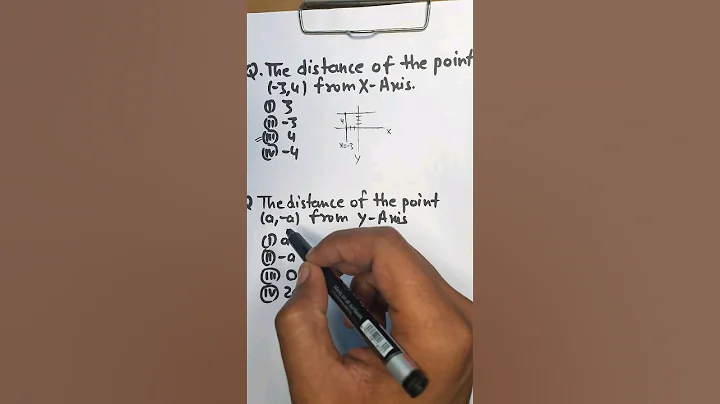 Q. The distance of the point
(-3,4) from X-Axis.
(i) 3
(ii) -3
(iii) 4
(iv) -4
4
X
X=-3
Y
Q The distance of the point
(a,-a) from Y-Axis
(i) a
(ii) -a
(iii) 0
(iv) 2